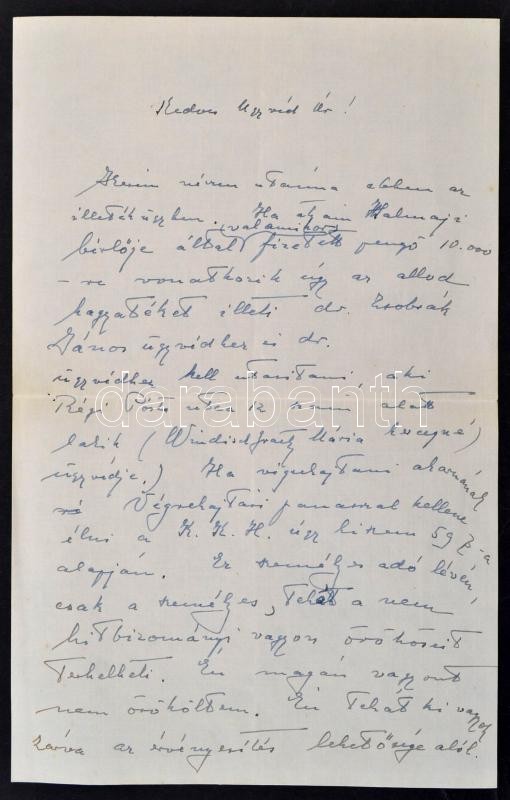 Kedves Ügyvéd Úr!
utánna ebben az
illetékügyben. Ha atyám Halmaji
(valamikor)
bérlője által fizetett pengő 10.000
-re vonatkozik úgy az allod
hagyatékot illeti dr. Zsobrák
János ügyvédhez és dr.
ügyvédhez kell utasitani, aki
Régi Posta utca 12 szám alatt
lakik (Windischgraetz Mária hercegné
ügyvédje.) Ha végrehajtani akarnának
Végrehajtási panasszal kellene
élni a K. K. H. úgy hiszem 59 §-a
alapján. Ez személyes adó lévén,
csak a személyes, tehát a nem
hitbizományi vagyon örököseit
terhelheti. Én magán vagyont
nem örököltem. Én tehát ki vagyok
zárva az érvényesítés lehetősége alól.
darabanth